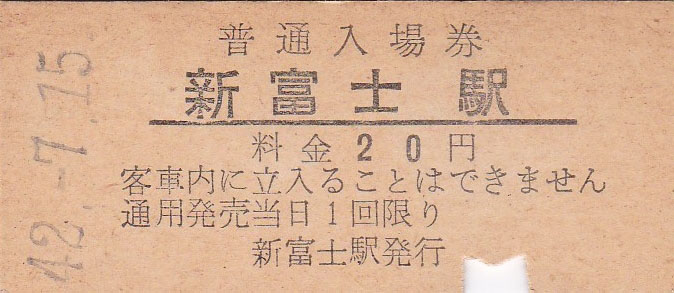 42.-7.15
普通入場券
新富士駅
料金20円
客車内に立入ることはできません
通用発売当日1回限り
新富士駅発行